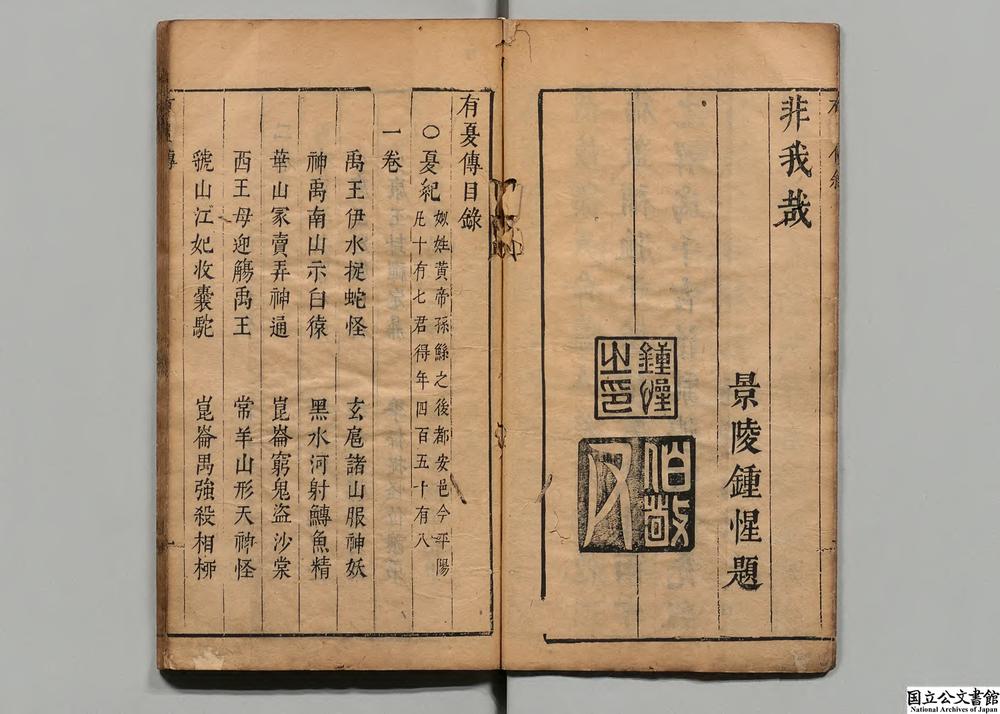 非我哉
景陵鍾惺題
鍾惺之印
伯敬
有夏傳目錄
〇夏紀 姒姓黃帝孫鯀之後都安邑今平陽
凡十有七君得年四百五十有八
一卷
禹王伊水捉蛇怪 玄扈諸山服神妖
神禹南山示白猿 黑水河射鱄魚精
華山冢賣弄神通 崑崙窮鬼盜沙棠
西王母迎觴禹王 常羊山形天神怪
號山江妃收橐駝 崑崙禺強殺相桺
国立公文書館
National Archives of Japan